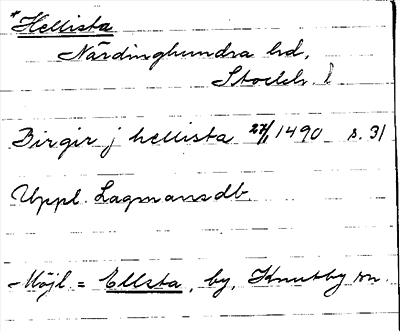 *Hellista
Närdinghundra hd,
Stockh. l
Birgir j hellista 27/1 1490 s. 31
Uppl. Lagmansdb.
- Möjl. = Ellsta, by, Knutby sn.